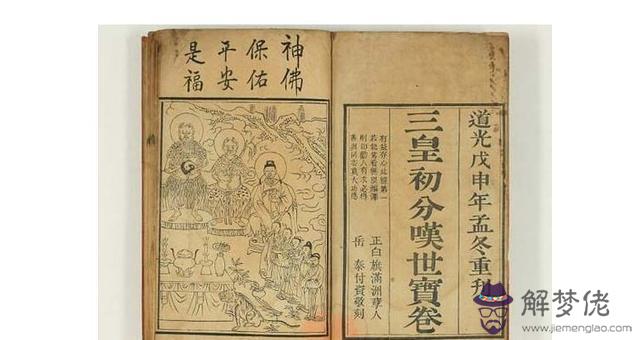 道光戊申年孟冬重刊
三皇初分嘆世寶卷
有益存心此經第一
正白旗滿洲人
岳泰付資敬刻
神佛
保佑
平安
是福
解梦佬
www.jiemenglao.com